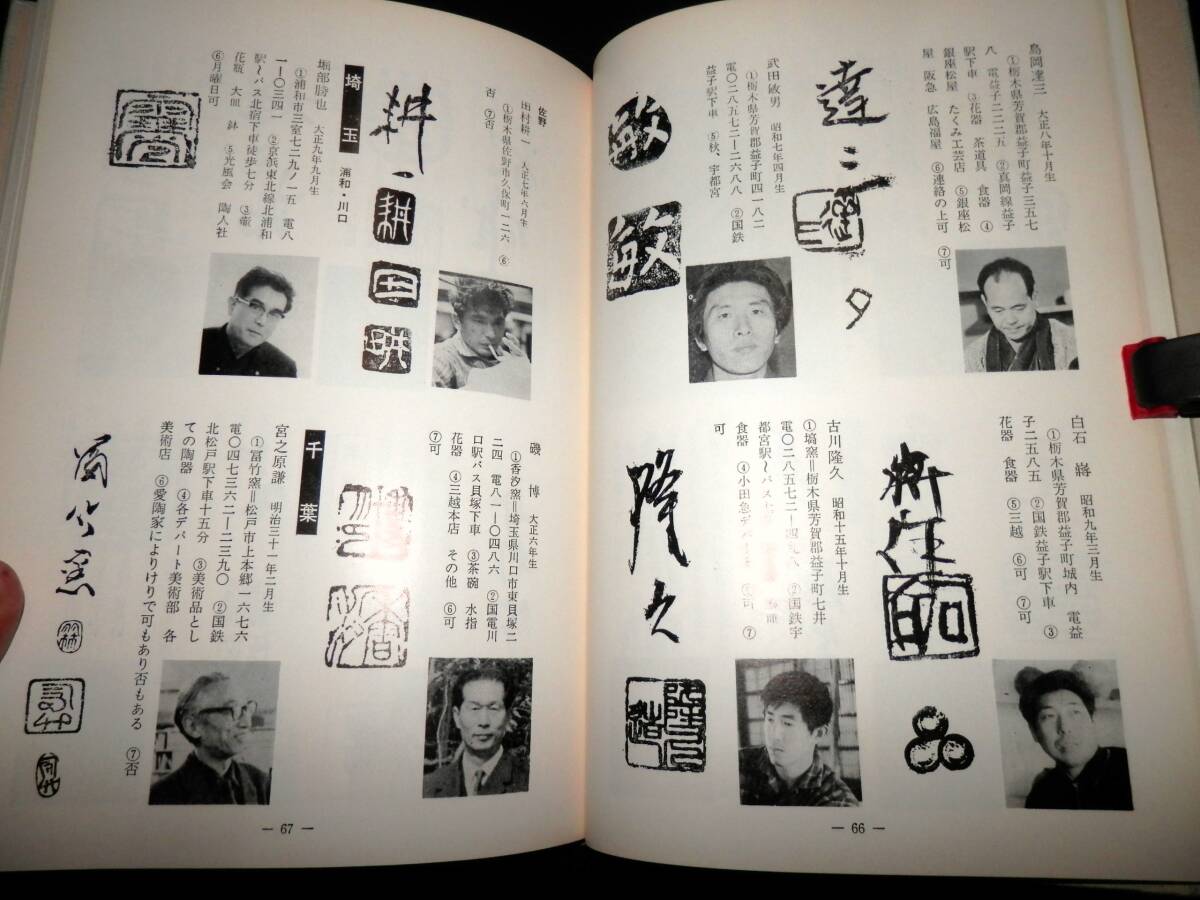 島岡達三　大正八年十月生
①栃木県芳賀郡益子町益子三五七
八　電益子二二二五　②真岡線益子
駅下車　③花器　茶道具　食器　④
銀座松屋　たくみ工芸店　⑤銀座松
屋　阪急　広島福屋　⑥連絡の上可
⑦可
達三
武田敏男　昭和七年四月生
①栃木県芳賀郡益子町四一八二
電〇二八五七二―二六八八　②国鉄
益子駅下車　⑤秋、宇都宮
敏
敏
白石　昭和九年三月生
①栃木県芳賀郡益子町城内　電益
子二五八五　②国鉄益子駅下車　③
花器　食器　⑤三越　⑥可　⑦可
古川隆久　昭和十五年十月生
①塙窯＝栃木県芳賀郡益子町七井
電〇二八五七二―　②国鉄宇
都宮駅～バス
食器　④小田急デパート　⑦
可
隆久
― 66 ―
佐野
田村耕一　大正七年六月生
①栃木県佐野市久保町一二六　⑥
否　⑦否
耕一
耕
田
埼玉　浦和・川口
堀部勝也　大正九年九月生
①浦和市三室七二九ノ一五　電八
一―〇三四一　②京浜東北線北浦和
駅～バス北宿下車徒歩七分　③壷
花瓶　大皿　鉢　⑤光風会　陶人社
⑥月曜日可
磯　博　大正六年生
①香汐窯＝埼玉県川口市東貝塚二
二四　電八一―〇四八六　②国電川
口駅バス貝塚下車　③茶碗　水指
花器　④三越本店　その他　⑥可
⑦可
千葉
宮之原謙　明治三十一年二月生
①冨竹窯＝松戸市上本郷一六七六
電〇四七三六二―二三九〇　②国鉄
北松戸駅下車十五分　③美術品とし
ての陶器　④各デパート美術部　各
美術店　⑥愛陶家によりけりで可もあり否もある　⑦否
― 67 ―